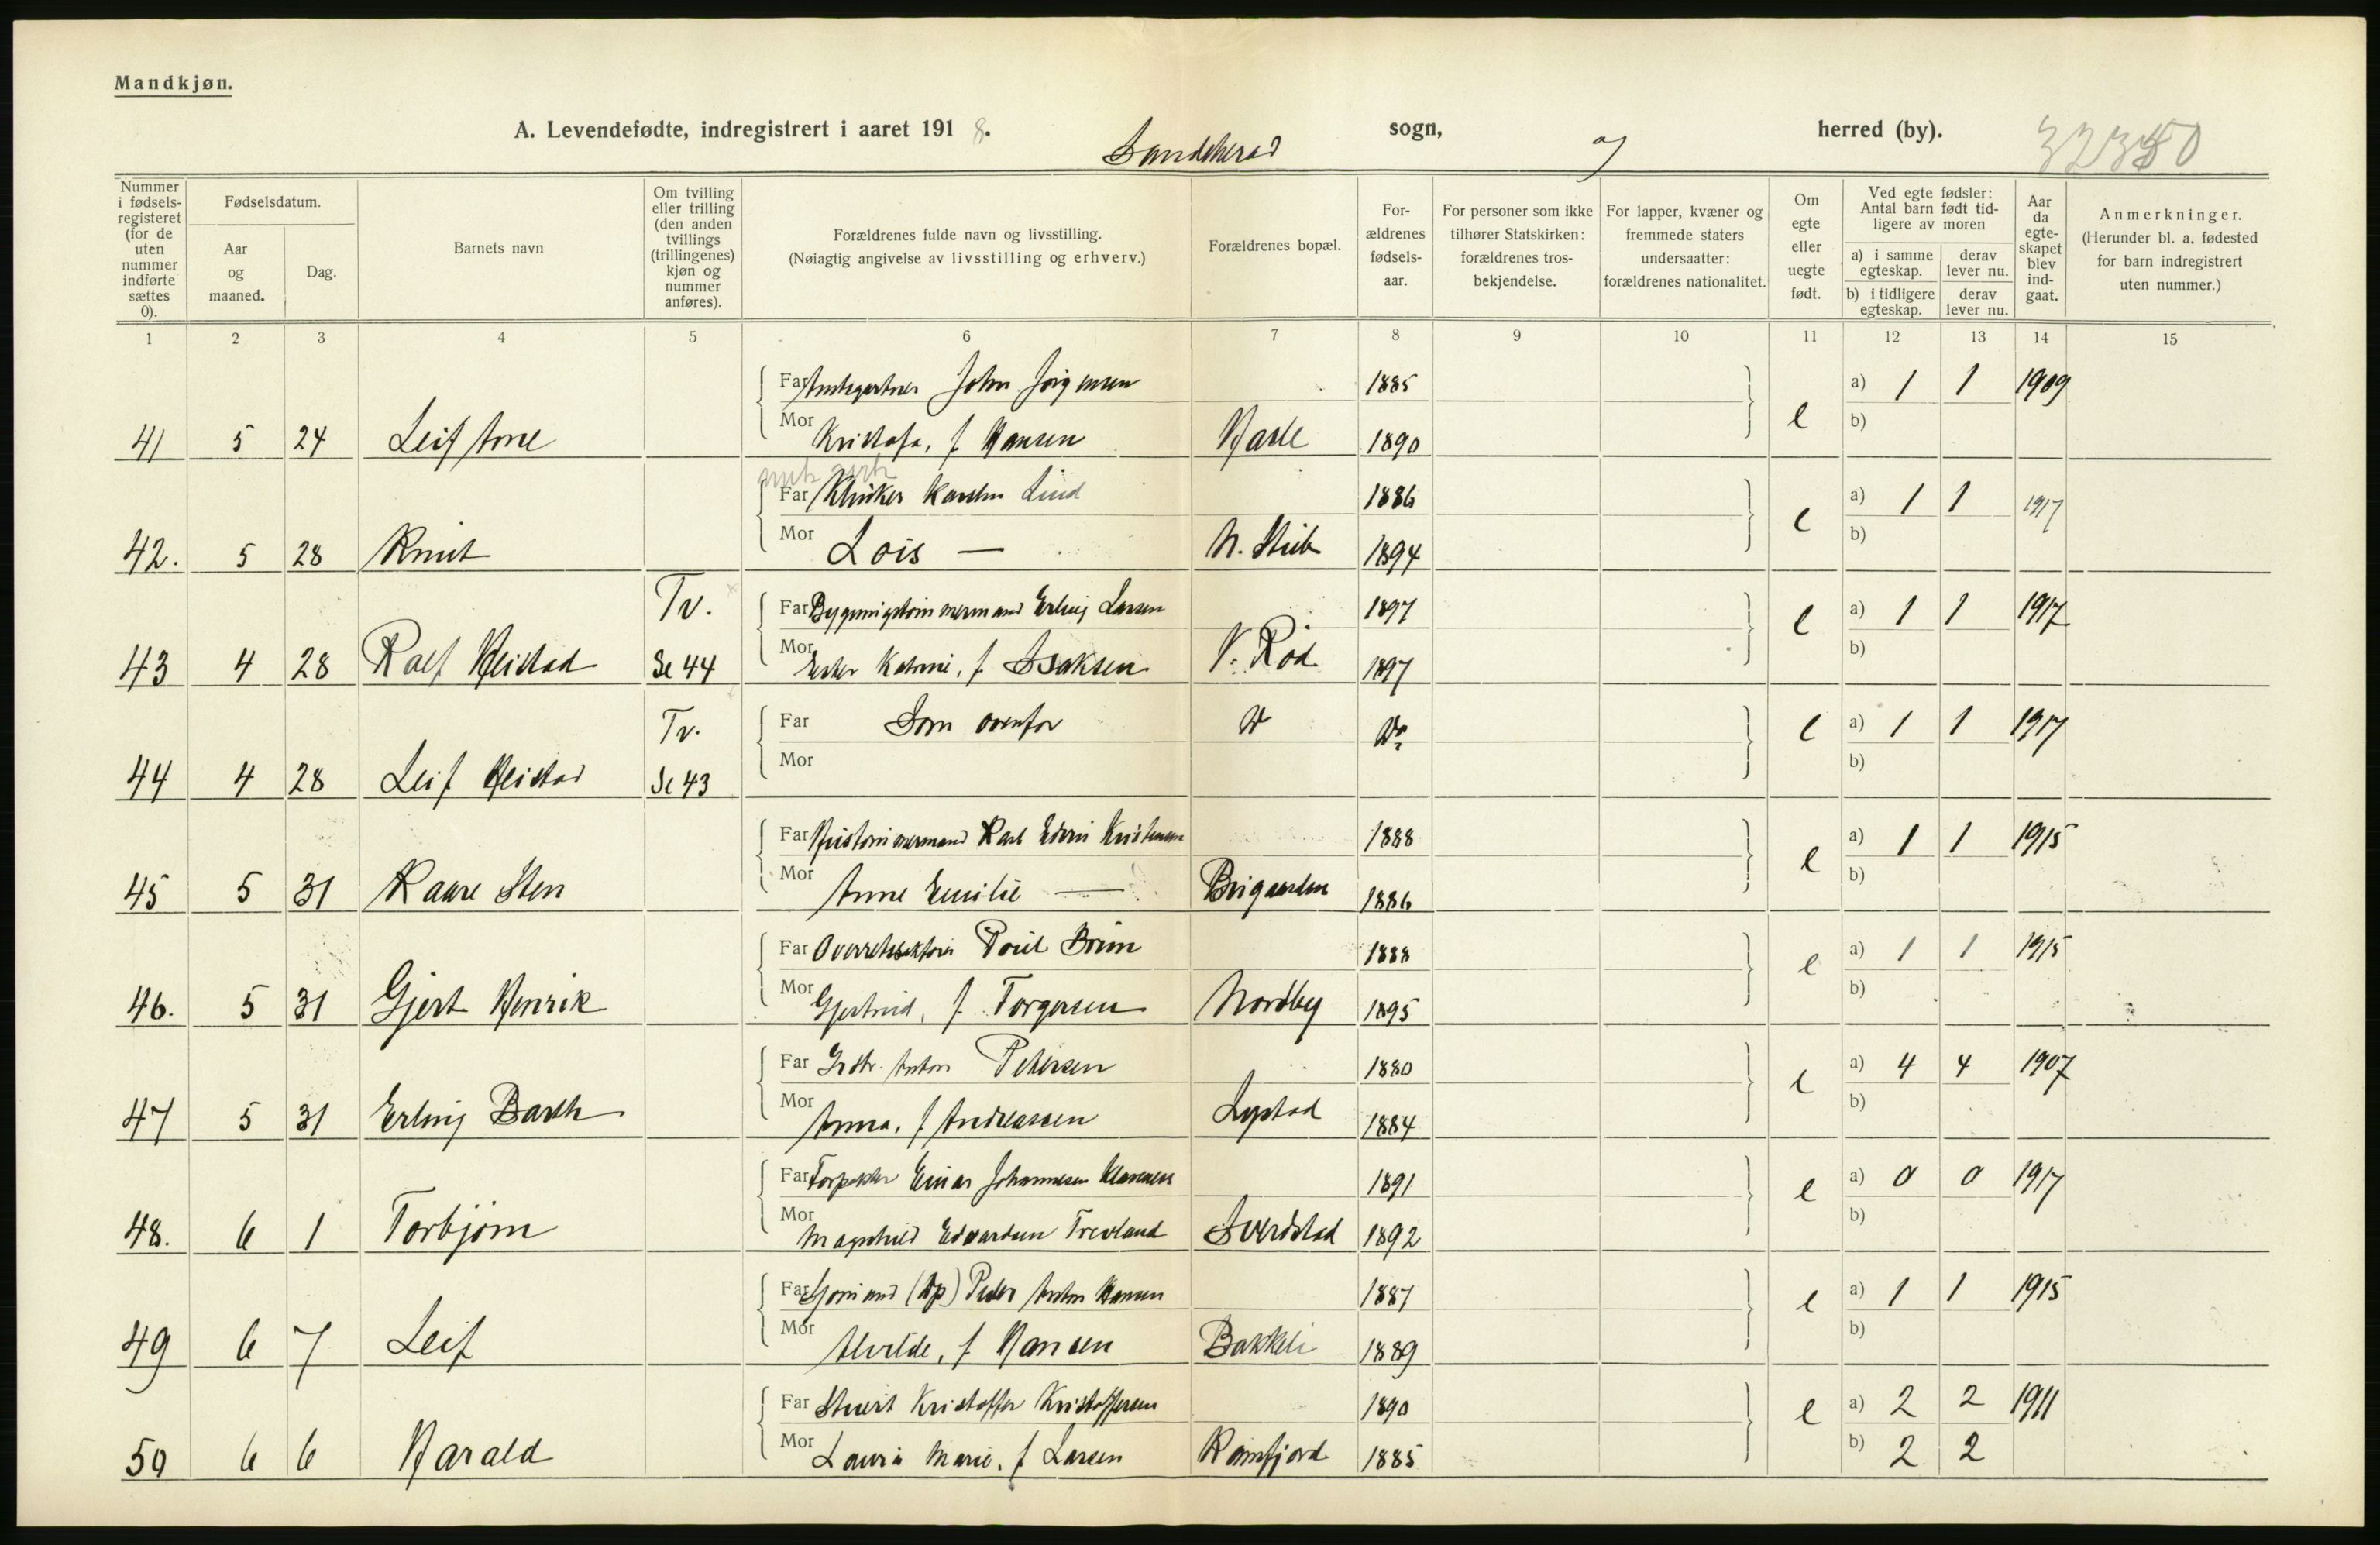 Mandkjøn.
A. Levendefødte, indregistrert i aaret 1918. Sandeherad sogn, og herred (by).
Nummer i fødselsregisteret (for de uten nummer indførte sættes 0).
Fødselsdatum.
Aar og maaned.
Dag.
Barnets navn
Om tvilling eller trilling (den anden tvillings (trillingenes) kjøn og nummer anføres).
Forældrenes fulde navn og livsstilling.
(Nøiagtig angivelse av livsstilling og erhverv.)
Forældrenes bopæl.
Forældrenes fødselsaar.
For personer som ikke tilhører Statskirken: forældrenes trosbekjendelse.
For lapper, kvæner og fremmede staters undersaatter: forældrenes nationalitet.
Om egte eller uegte født.
Ved egte fødsler: Antal barn født tidligere av moren
a) i samme egteskap.
derav lever nu.
b) i tidligere egteskap.
derav lever nu.
Aar da egteskapet blev indgaat.
Anmerkninger.
(Herunder bl. a. fødested for barn indregistrert uten nummer.)
1 2 3 4 5 6 7 8 9 10 11 12 13 14 15
Far Amtsgartner John Jørgensen 1885 a) 1 1 1909
41 5 24 Leif Arne Mor Kristofa, f. Hansen Hasle 1890 e b)
Far Klinker Karsten Lind 1886 a) 1 1 1917
42. 5 28 Knut Mor Lois — N. Stub 1894 e b)
Tv. Far Bygningstømmermand Erling Larsen 1897 a) 1 1 1917
43 4 28 Ralf Heistad Se 44 Mor Ester Katrine, f. Isaksen V. Rød 1897 e b)
Tv. Far Som ovenfor Do Do e a) 1 1 1917
44 4 28 Leif Heistad Se 43 Mor b)
Far Karl Edvin Kristensen 1888 a) 1 1 1915
45 5 31 Kaare Sten Mor Anne Emilie — Brigaarden 1886 e b)
Far Overretssakfører Poul Bruun 1888 a) 1 1 1915
46. 5 31 Gjert Henrik Mor Gjertrud, f. Torgersen Nordby 1895 e b)
Far Grdbr. Anton Petersen 1880 a) 4 4 1907
47 5 31 Erling Barth Mor Anna, f. Andreassen Lystad 1884 e b)
Far Einar Johannesen Klavenes 1891 a) 0 0 1917
48. 6 1 Torbjørn Mor Magnhild Edvardsen Treoland Sverdstad 1892 e b)
Far Sjømand (Dp) Peder Anton Hansen 1887 a) 1 1 1915
49 6 7 Leif Mor Alvilde, f. Hansen Bakkeli 1889 e b)
Far Stuert Kristoffer Kristoffersen 1890 e a) 2 2 1911
50 6 6 Harald Mor Laura Marie, f. Larsen Kamfjord 1885 b) 2 2